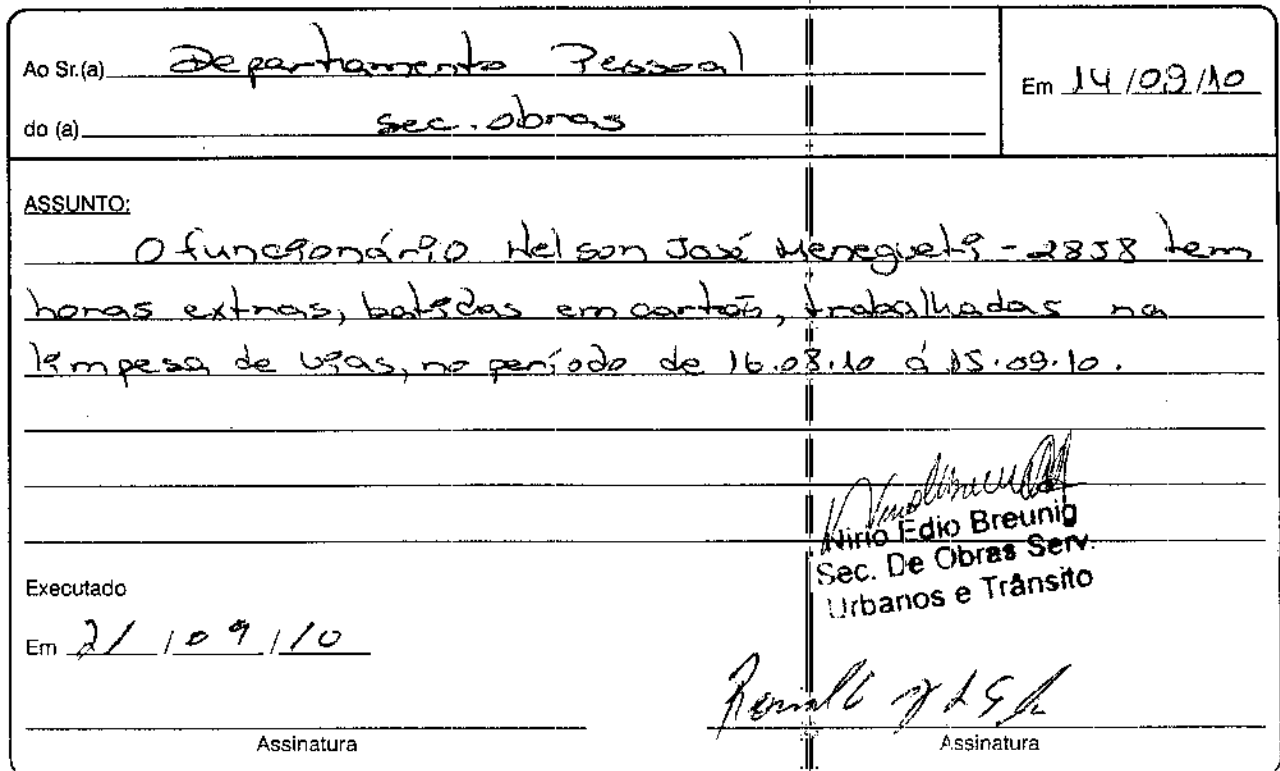 Ao Sr.(a) Departamento Pessoal
Em 14/09/10
do (a) Sec. Obras
ASSUNTO:
O funcionário Nelson José Menegueti - 2838 tem
horas extras, batidas em cartão, trabalhadas na
limpesa de vias, no período de 16.08.10 á 15.09.10.
Nirio Edio Breunig
Sec. De Obras Serv.
Urbanos e Trânsito
Executado
Em 21/09/10
Assinatura
Assinatura